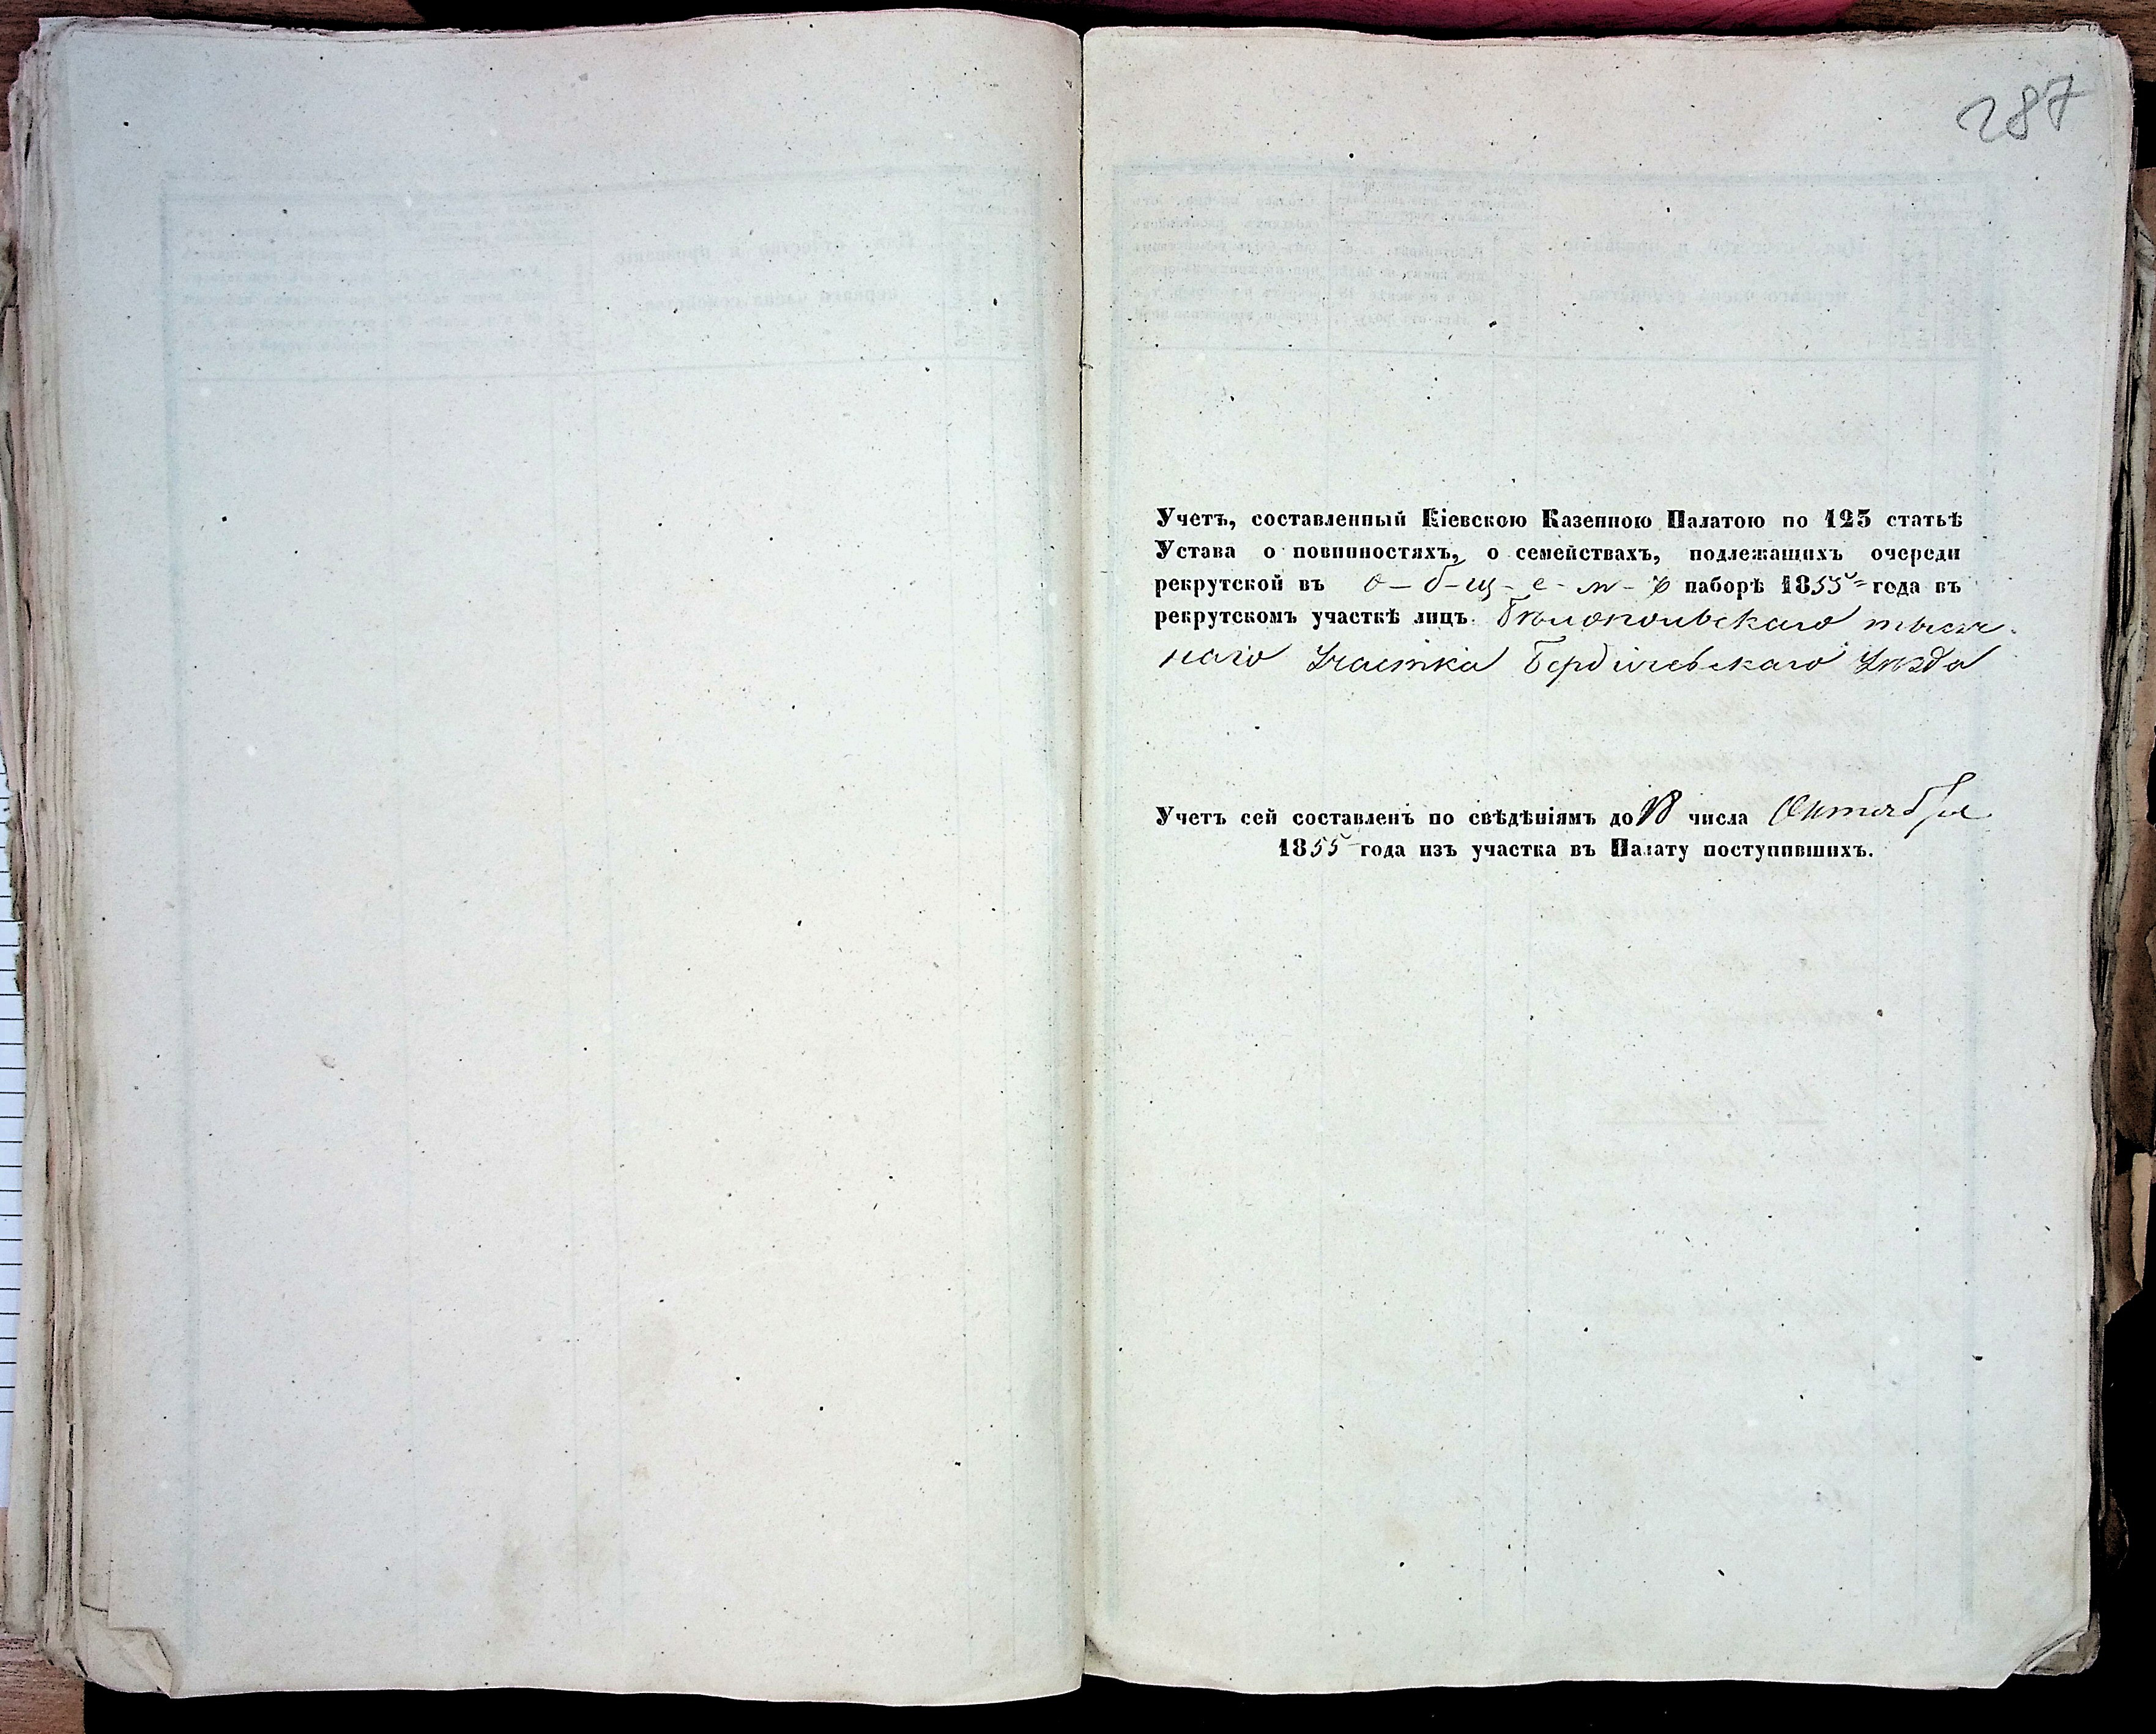 287
Учетъ, составленный Кіевскою Казенною Палатою по 125 статьѣ
Устава о повинностяхъ, о семействахъ, подлежащихъ очереди
рекрутской въ о-б-щ-е-м-ъ наборѣ 1855 года въ
рекрутскомъ участкѣ лицъ Бѣлопольскаго тысяч-
наго Участка Бердичевскаго Уѣзда
Учетъ сей составленъ по свѣдѣніямъ до 18 числа Октября
1855 года изъ участка въ Палату поступившихъ.